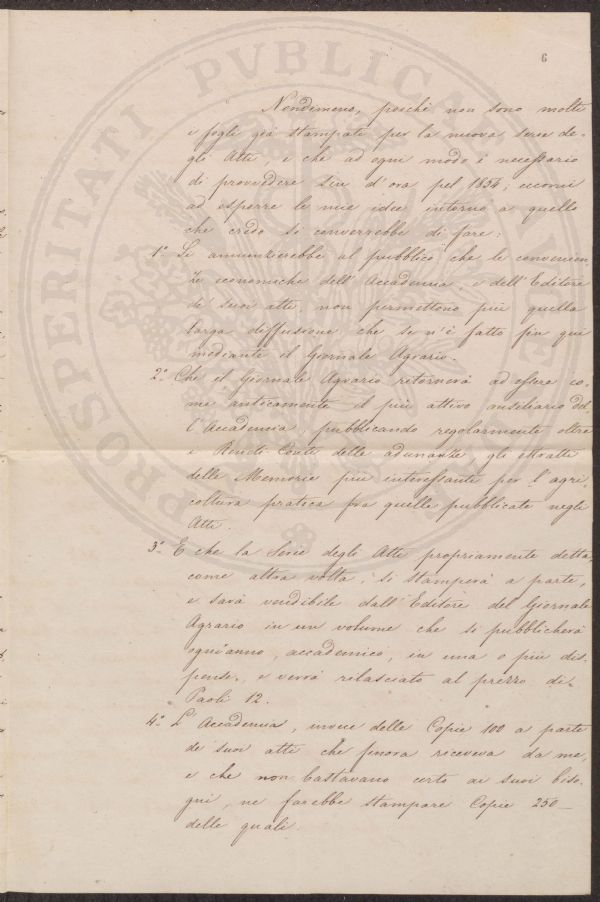 6
PROSPERITATI PVBLICAE
Nondimeno, poichè non sono molti
i fogli già stampati per la nuova serie de-
gli Atti, e che ad ogni modo è necessario
di provvedere sin d'ora pel 1854; eccomi
ad esporre le mie idee intorno a quello
che credo si converrebbe di fare:
1.° Si annunzierebbe al pubblico che le convenien
ze economiche dell'Accademia, e dell'Editore
de' suoi atti, non permettono più quella
larga diffusione che se n'è fatto fin qui
mediante il Giornale Agrario.
2.° Che il Giornale Agrario ritornerà ad essere co-
me anticamente il più attivo ausiliario del-
l'Accademia pubblicando regolarmente oltre
i Rendi-Conti delle adunanze gli estratti
delle Memorie più interessanti per l'agri-
coltura pratica fra quelle pubblicate negli
Atti.
3.° E che la Serie degli Atti propriamente detta,
come altra volta, si stamperà a parte,
e sarà vendibile dall'Editore del Giornale
Agrario in un volume che si pubblicherà
ogni anno, accademico, in una o più dis-
pense, e verrà rilasciato al prezzo di
Paoli 12.
4.° L'Accademia, invece delle Copie 100 a parte
de' suoi atti che finora riceveva da me,
e che non bastavano certo ai suoi biso-
gni, ne farebbe stampare Copie 250
delle quali: